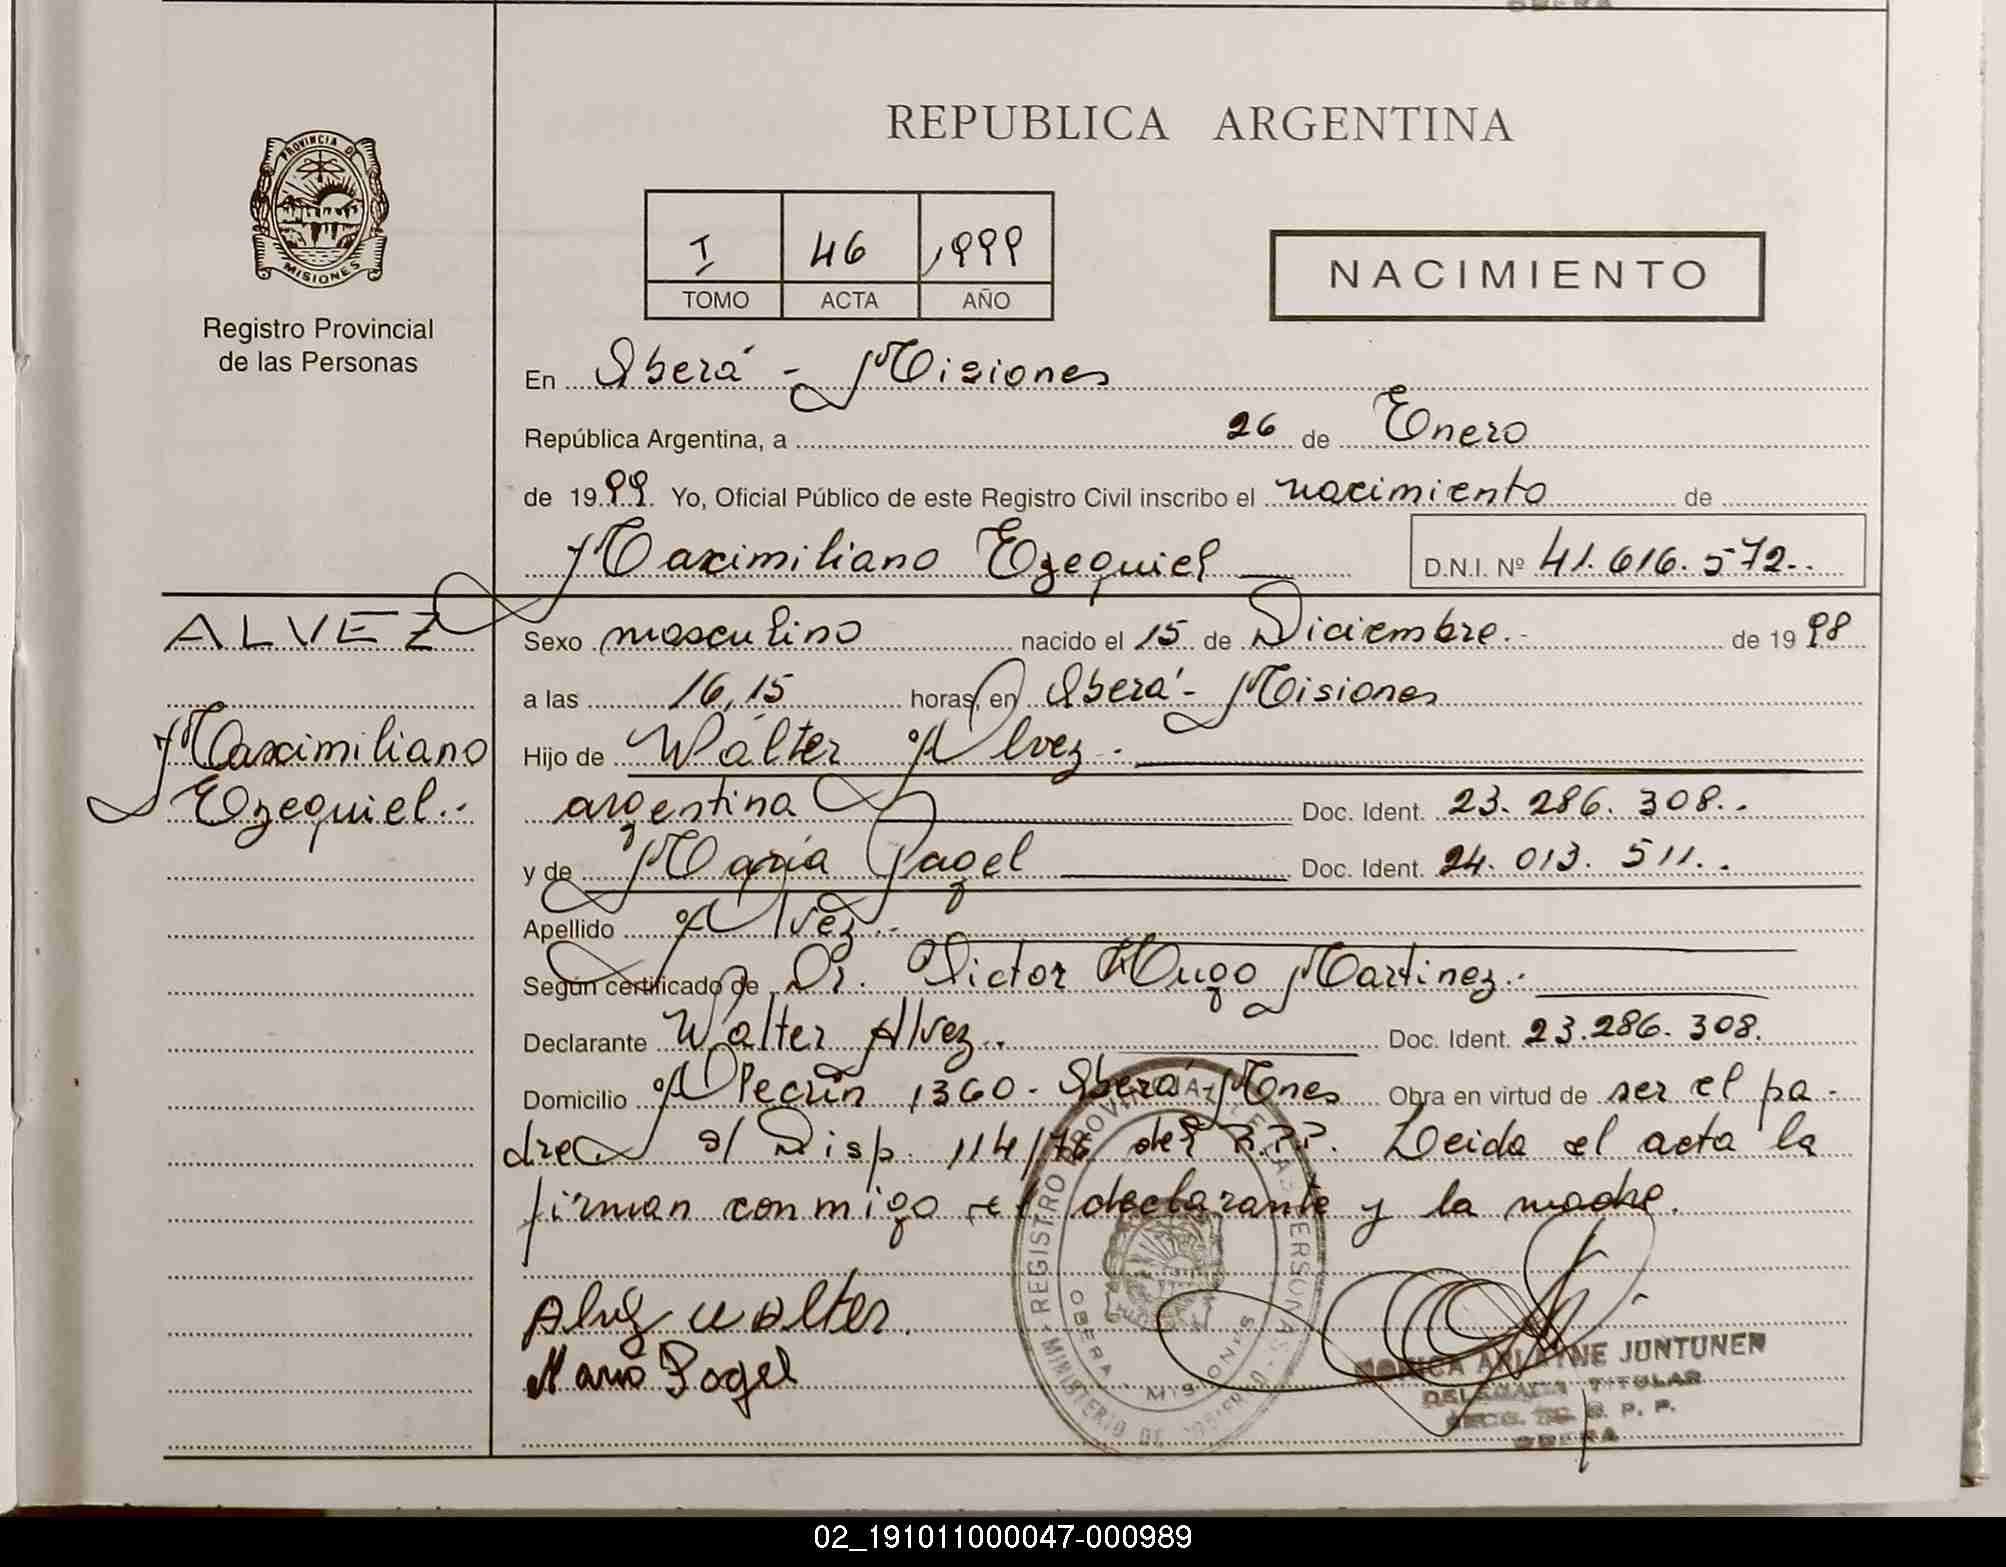 OBERA
REPUBLICA ARGENTINA
PROVINCIA DE
MISIONES
Registro Provincial
de las Personas
I 46 1999
TOMO ACTA AÑO
NACIMIENTO
En Oberá - Misiones
República Argentina, a 26 de Enero
de 1999. Yo, Oficial Público de este Registro Civil inscribo el nacimiento de
Maximiliano Ezequiel D.N.I. Nº 41.616.572..
ALVEZ
Maximiliano
Ezequiel.-
Sexo masculino nacido el 15 de Diciembre.- de 1998
a las 16,15 horas, en Oberá - Misiones
Hijo de Wálter Alvez.-
argentina Doc. Ident. 23.286.308..
y de María Pagel Doc. Ident. 24.013.511..
Apellido Alvez.-
Según certificado de Dr. Victor Hugo Martinez.-
Declarante Wálter Alvez.. Doc. Ident. 23.286.308.
Domicilio Alecrín 1360 - Oberá - Mnes Obra en virtud de ser el pa-
dre s/ Disp. 114/78 del R.P.P. Leida el acta la
firman conmigo el declarante y la madre.
Alvez walter.
Maria Pagel
REGISTRO PROVINCIAL DE LAS PERSONAS
OBERA MISIONES
MINISTERIO DE GOBIERNO
MONICA ARIADNE JUNTUNEN
DELEGADA TITULAR
R. P. P.
OBERA
02_191011000047-000989